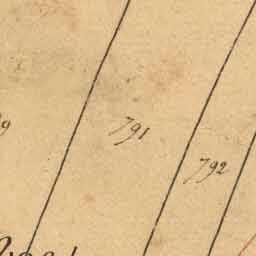 9
791
792